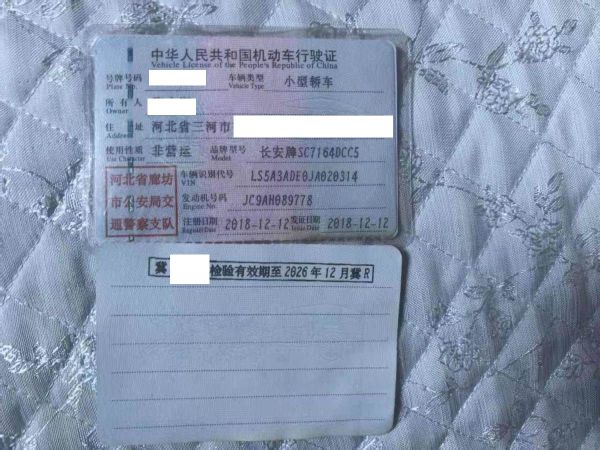 中华人民共和国机动车行驶证
Vehicle License of the People's Republic of China
号牌号码
Plate No.
车辆类型 小型轿车
Vehicle Type
所有人
Owner
住址 河北省三河市
Address
使用性质 非营运 品牌型号 长安牌SC7164DCC5
Use Character Model
河北省廊坊
市公安局交
通警察支队
车辆识别代号 LS5A3ADE0JA020314
VIN
发动机号码 JC9AH089778
Engine No.
注册日期 2018-12-12 发证日期 2018-12-12
Register Date Issue Date
冀 检验有效期至2026年12月冀R